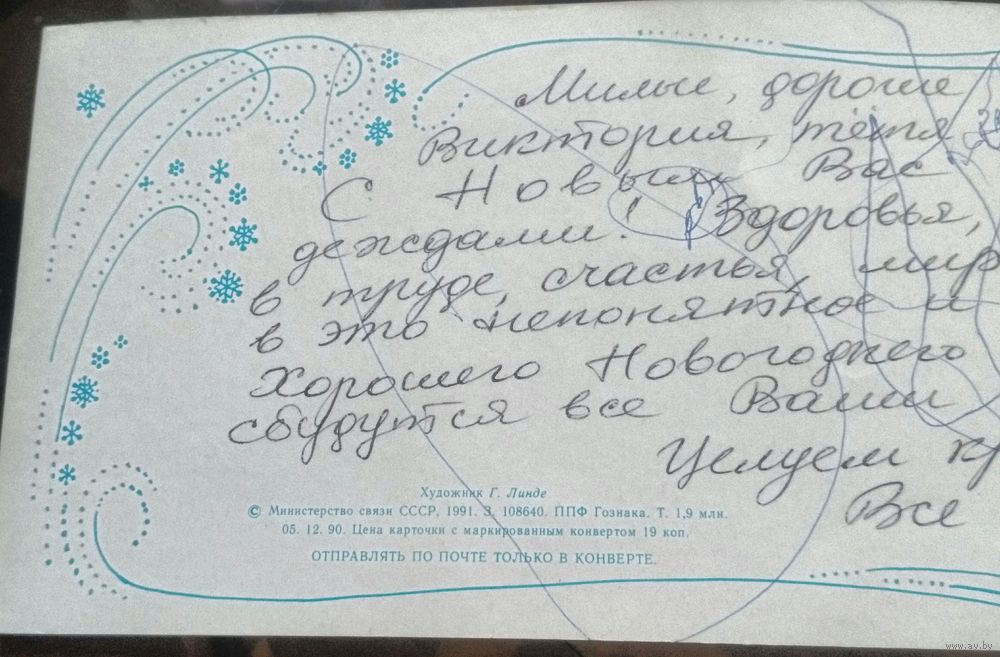 Милые, дорогие
Виктория, тётя
С Новым Вас
деждами! Здоровья,
в труде, счастья, мир
в это непонятное и
Хорошего Новогоднего
сбудутся все Ваши
Целуем кр
Все
Художник Г. Линде
© Министерство связи СССР, 1991. З. 108640. ППФ Гознака. Т. 1,9 млн.
05. 12. 90. Цена карточки с маркированным конвертом 19 коп.
ОТПРАВЛЯТЬ ПО ПОЧТЕ ТОЛЬКО В КОНВЕРТЕ.
www.av.by